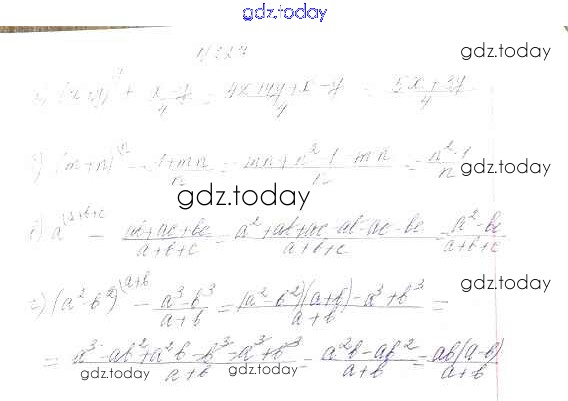 gdz.today
№ 227
gdz.today
а) (x+y)^(4 + (x-y)/4 = (4x+4y+x-y)/4 = (5x+3y)/4
б) (m+n)^(n - (1+mn)/n = (mn+n²-1-mn)/n = (n²-1)/n
gdz.today
gdz.today
в) a^(a+b+c - (ab+ac+bc)/(a+b+c) = (a²+ab+ac-ab-ac-bc)/(a+b+c) = (a²-bc)/(a+b+c)
gdz.today
г) (a²-b²)^(a+b - (a³-b³)/(a+b) = ((a²-b²)(a+b)-a³+b³)/(a+b) =
= (a³-ab²+a²b-b³-a³+b³)/(a+b) = (a²b-ab²)/(a+b) = ab(a-b)/(a+b)
gdz.today gdz.today gdz.today